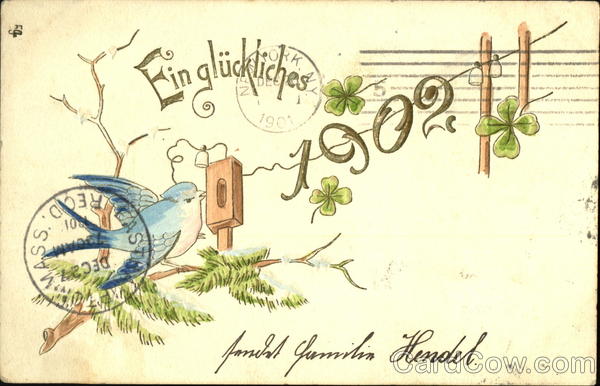 Ein glückliches
NEW YORK N.Y.
DEC
1901
1902.
MASS.
REC'D.
1901
AM
DEC
sendet Familie Hendel.
CardCow.com